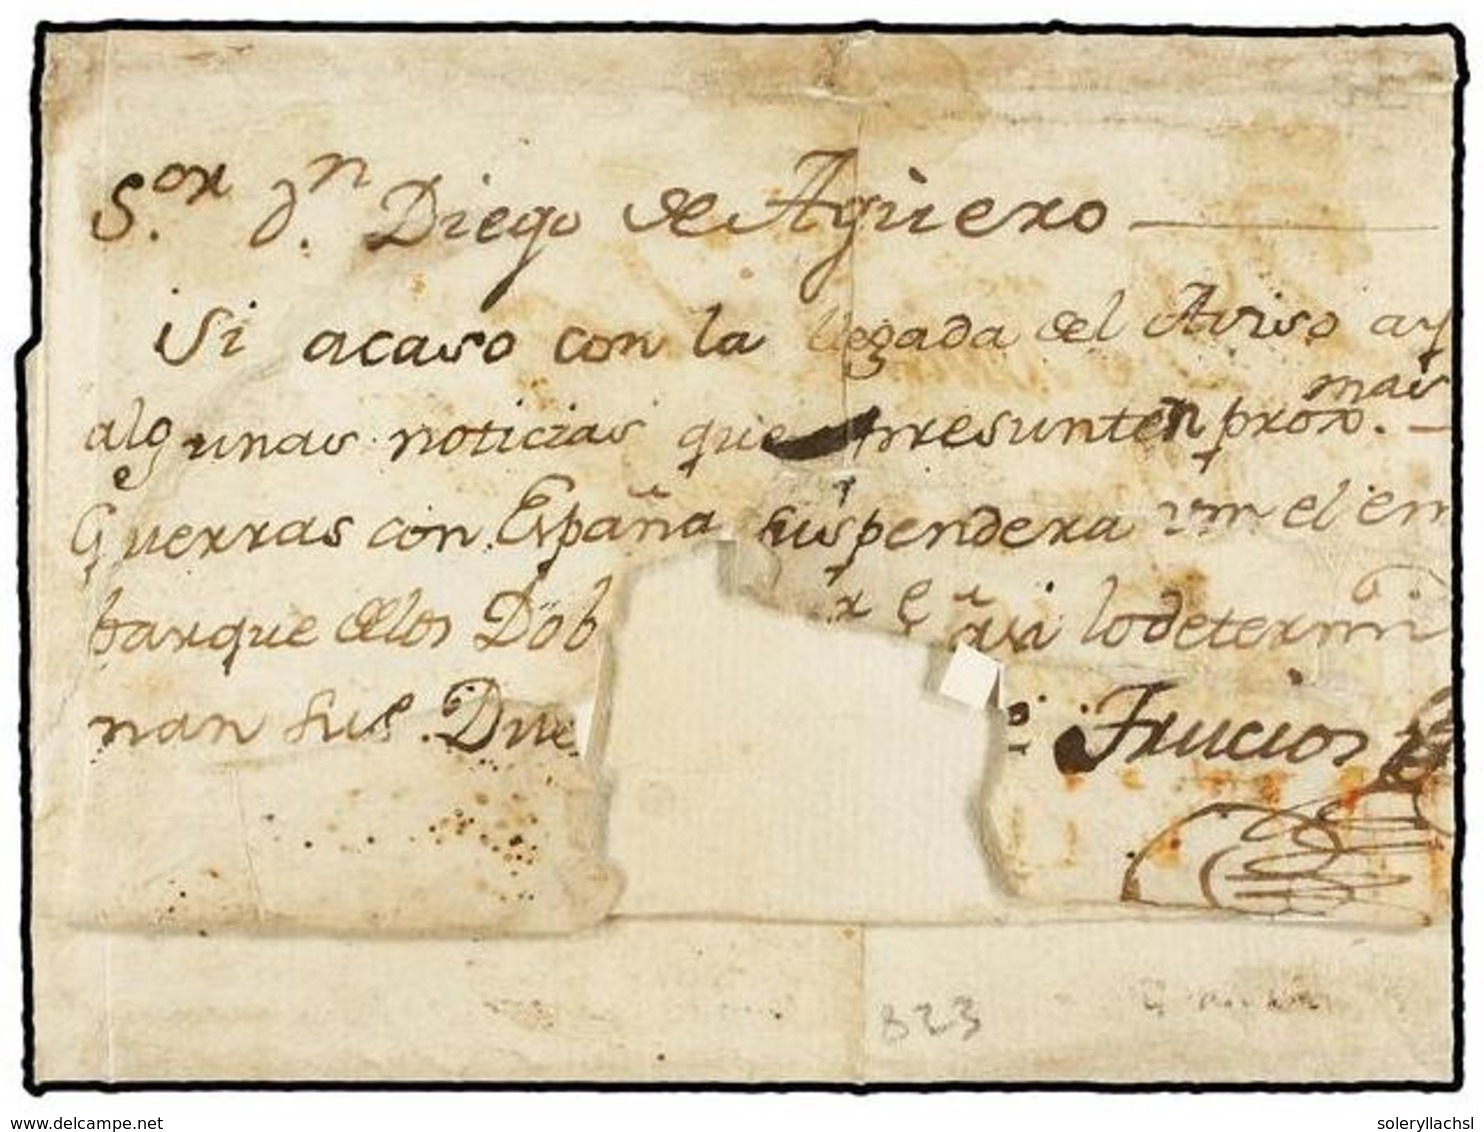 S.or D.n Diego de Agüero
Si acaso con la llegada del Aviso ay
algunas noticias que presunten prox.mas
Guerras con España suspendera vm el em
barque de los Dob
r q.e asi lo determi
nan sus Due
Frucios
823
www.delcampe.net
soleryllachsl